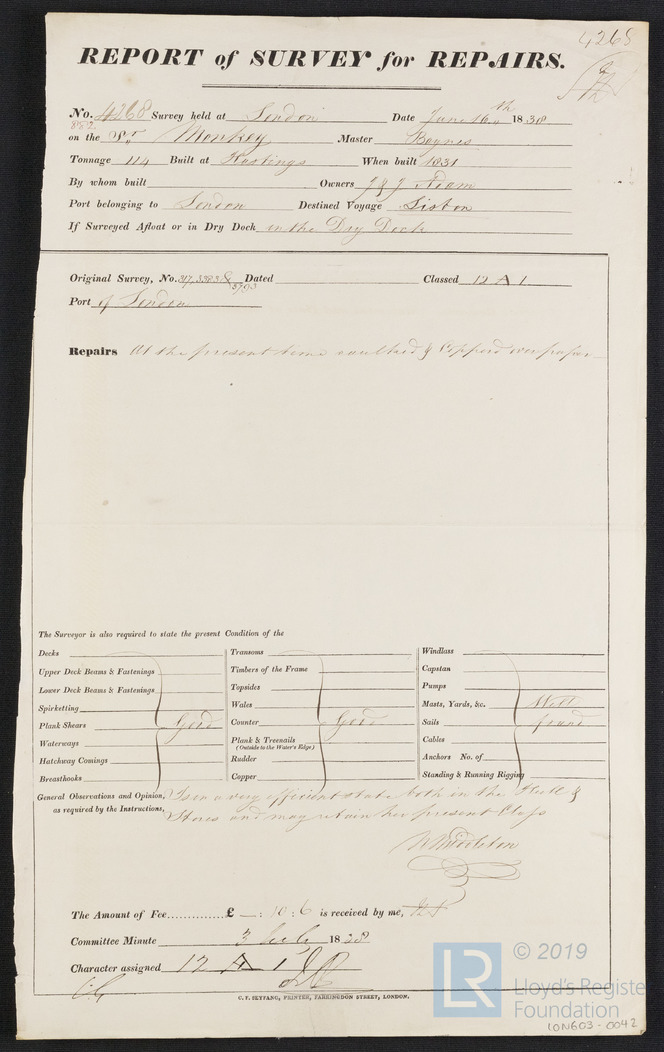 4268
REPORT of SURVEY for REPAIRS.
No. 4268 Survey held at London Date June 16th 1838
882
on the Sr Monkey Master Baynes
Tonnage 114 Built at Hastings When built 1831
By whom built Owners J & J Adam
Port belonging to London Destined Voyage Lisbon
If Surveyed Afloat or in Dry Dock in the Dry Dock
Original Survey, No. Dated Classed 12 A 1
Port of London
Repairs At the present time caulked & Copperd over paper
The Surveyor is also required to state the present Condition of the
Decks
Upper Deck Beams & Fastenings
Lower Deck Beams & Fastenings
Spirketting
Plank Shears Good
Waterways
Hatchway Comings
Breasthooks
Transoms
Timbers of the Frame
Topsides
Wales
Counter Good
Plank & Treenails
(Outside to the Water's Edge)
Rudder
Copper
Windlass
Capstan
Pumps
Masts, Yards, &c. Well
Sails found
Cables
Anchors No. of
Standing & Running Rigging
General Observations and Opinion, Is in a very efficient state both in the Hull &
as required by the Instructions, Stores and may retain her present Class
Middleton
The Amount of Fee............£ — : 10 : 6 is received by me,
Committee Minute 3 July 1838
Character assigned 12 A 1
C. F. SEYFANG, PRINTER, FARRINGDON STREET, LONDON.
LR © 2019
Lloyd's Register
Foundation
LON603-0042